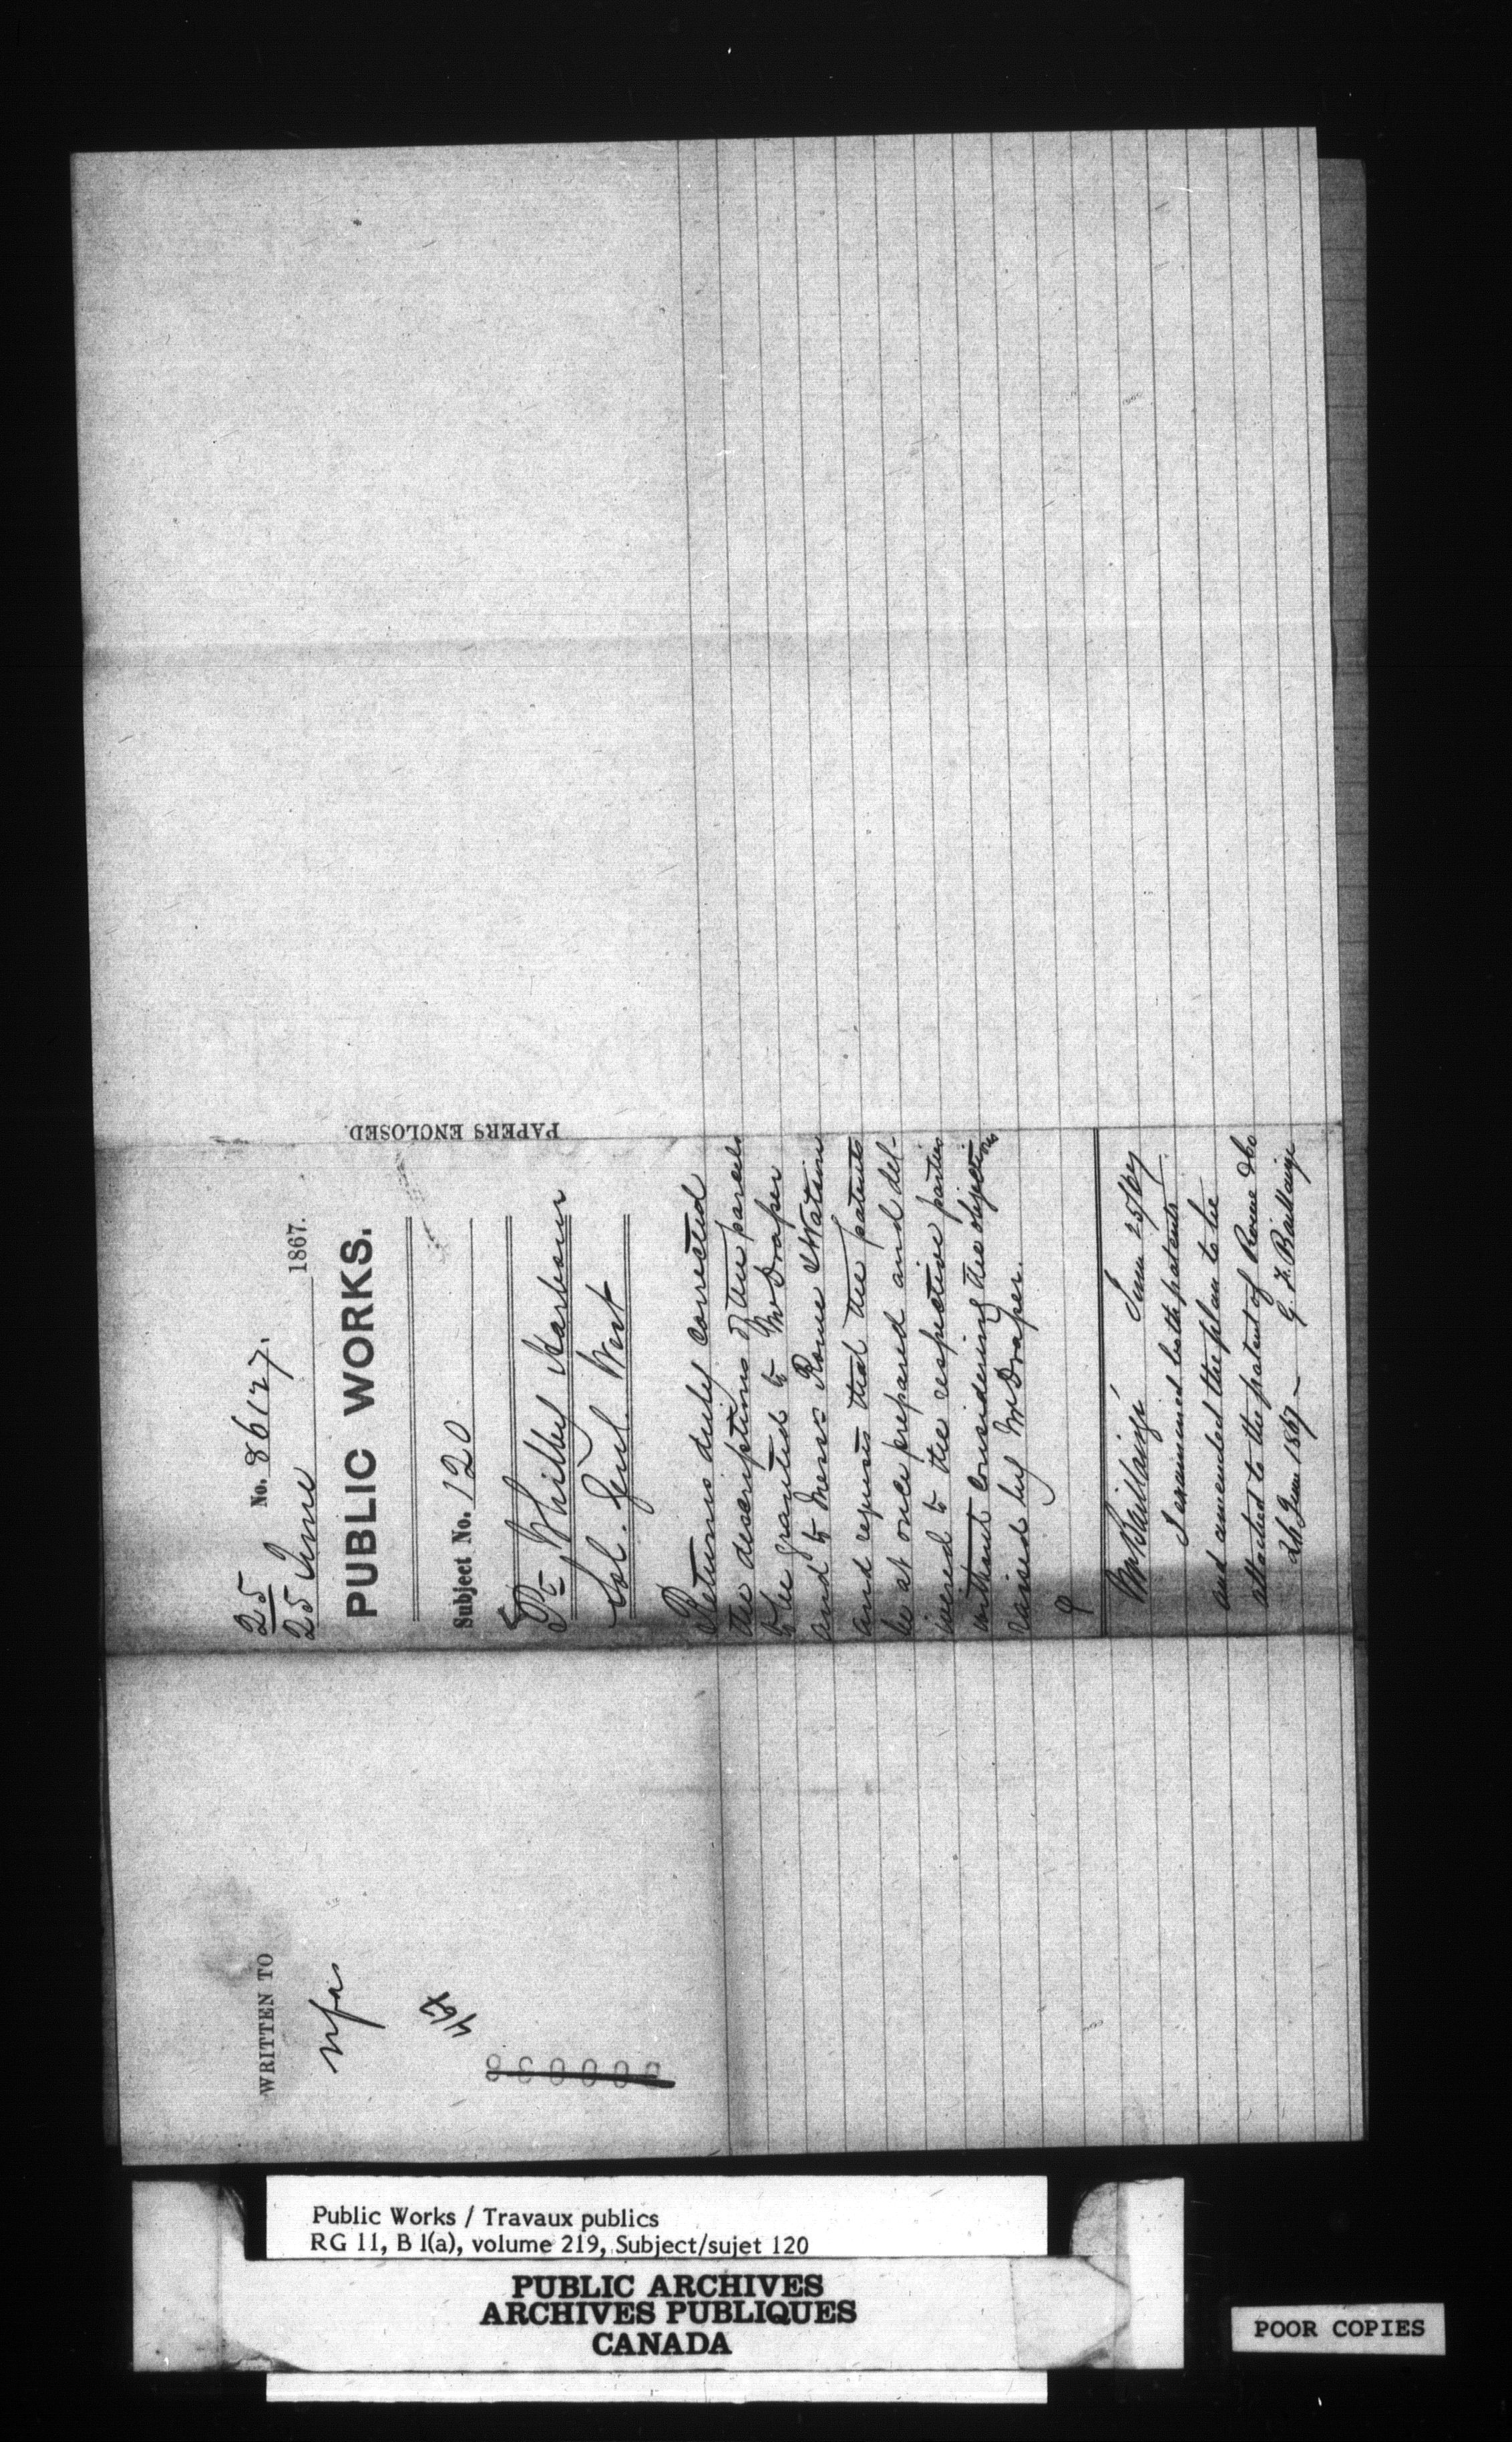 25 No. 86127.
25 June 1867.
PUBLIC WORKS.
Subject No. 120
Pt Whitby Harbour
Sol. Genl. West
Returns duly corrected
the descriptions of the parcels
to be granted to Mr Draper
and to Messrs Rowe & Watson
and requests that the patents
be at once prepared and del-
ivered to the respective parties
without considering the objections
raised by Mr Draper.
Mr Baillairgé June 25/67
I examined both patents
and amended the plan to be
attached to the patent of Rowe &Co
26 June 1867 – G. F. Baillairgé
PAPERS ENCLOSED.
WRITTEN TO
nfa
467
Public Works / Travaux publics
RG 11, B 1(a), volume 219, Subject/sujet 120
PUBLIC ARCHIVES
ARCHIVES PUBLIQUES
CANADA
POOR COPIES